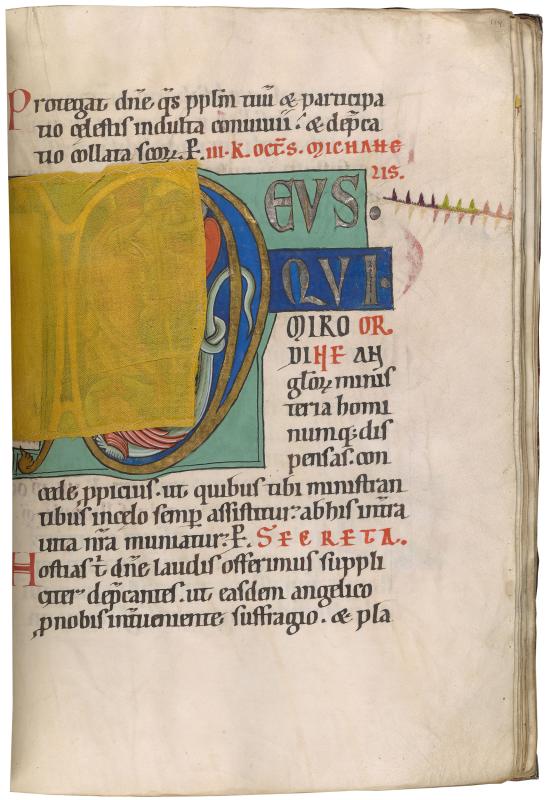 114
Protegat dn̄e q̄s pplm̄ tuū & participa
tio celestis indulta conuiuii. & dep̄ca
tio collata scōꝝ. P. III. K. OCT̄S. MICHAHE
LIS.
DEVS.
QVI
MIRO OR
DINE AN
glōꝝ minis
teria homi
numq; dis
pensas. con
cede ꝓpicius. ut quibus tibi ministran
tibus in celo semꝑ assistitur: ab his in tr̄a
uita nr̄a muniatur. P. SECRETA.
Hostias t̄ dn̄e laudis offerimus suppli
citer dep̄cantes. ut easdem angelico
ꝓ nobis int̄ueniente suffragio. & pla